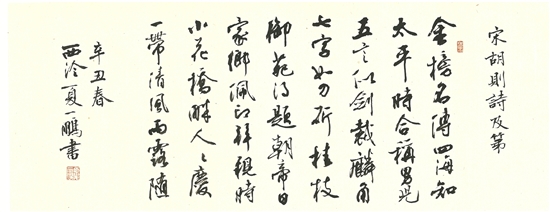 宋胡則詩及第
金榜名傳四海知
太平時合稱男兒
五言似劍裁麟角
七字如刀斫桂枝
御苑得題朝帝日
家鄉佩印拜親時
小花橋畔人々愛
一帶清風雨露隨
辛丑春
西泠夏一鵬書